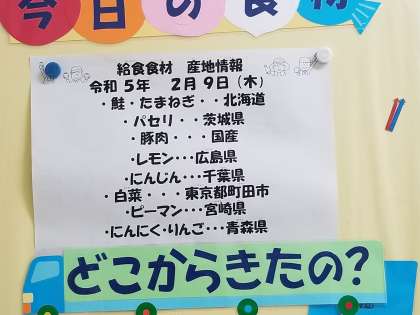 今日の食材
給食食材　産地情報
令和５年　２月９日（木）
・鮭・たまねぎ・・北海道
・パセリ・・茨城県
・豚肉・・・国産
・レモン･･･広島県
・にんじん･･･千葉県
・白菜・・・東京都町田市
・ピーマン･･･宮崎県
・にんにく・りんご･･･青森県
どこからきたの？